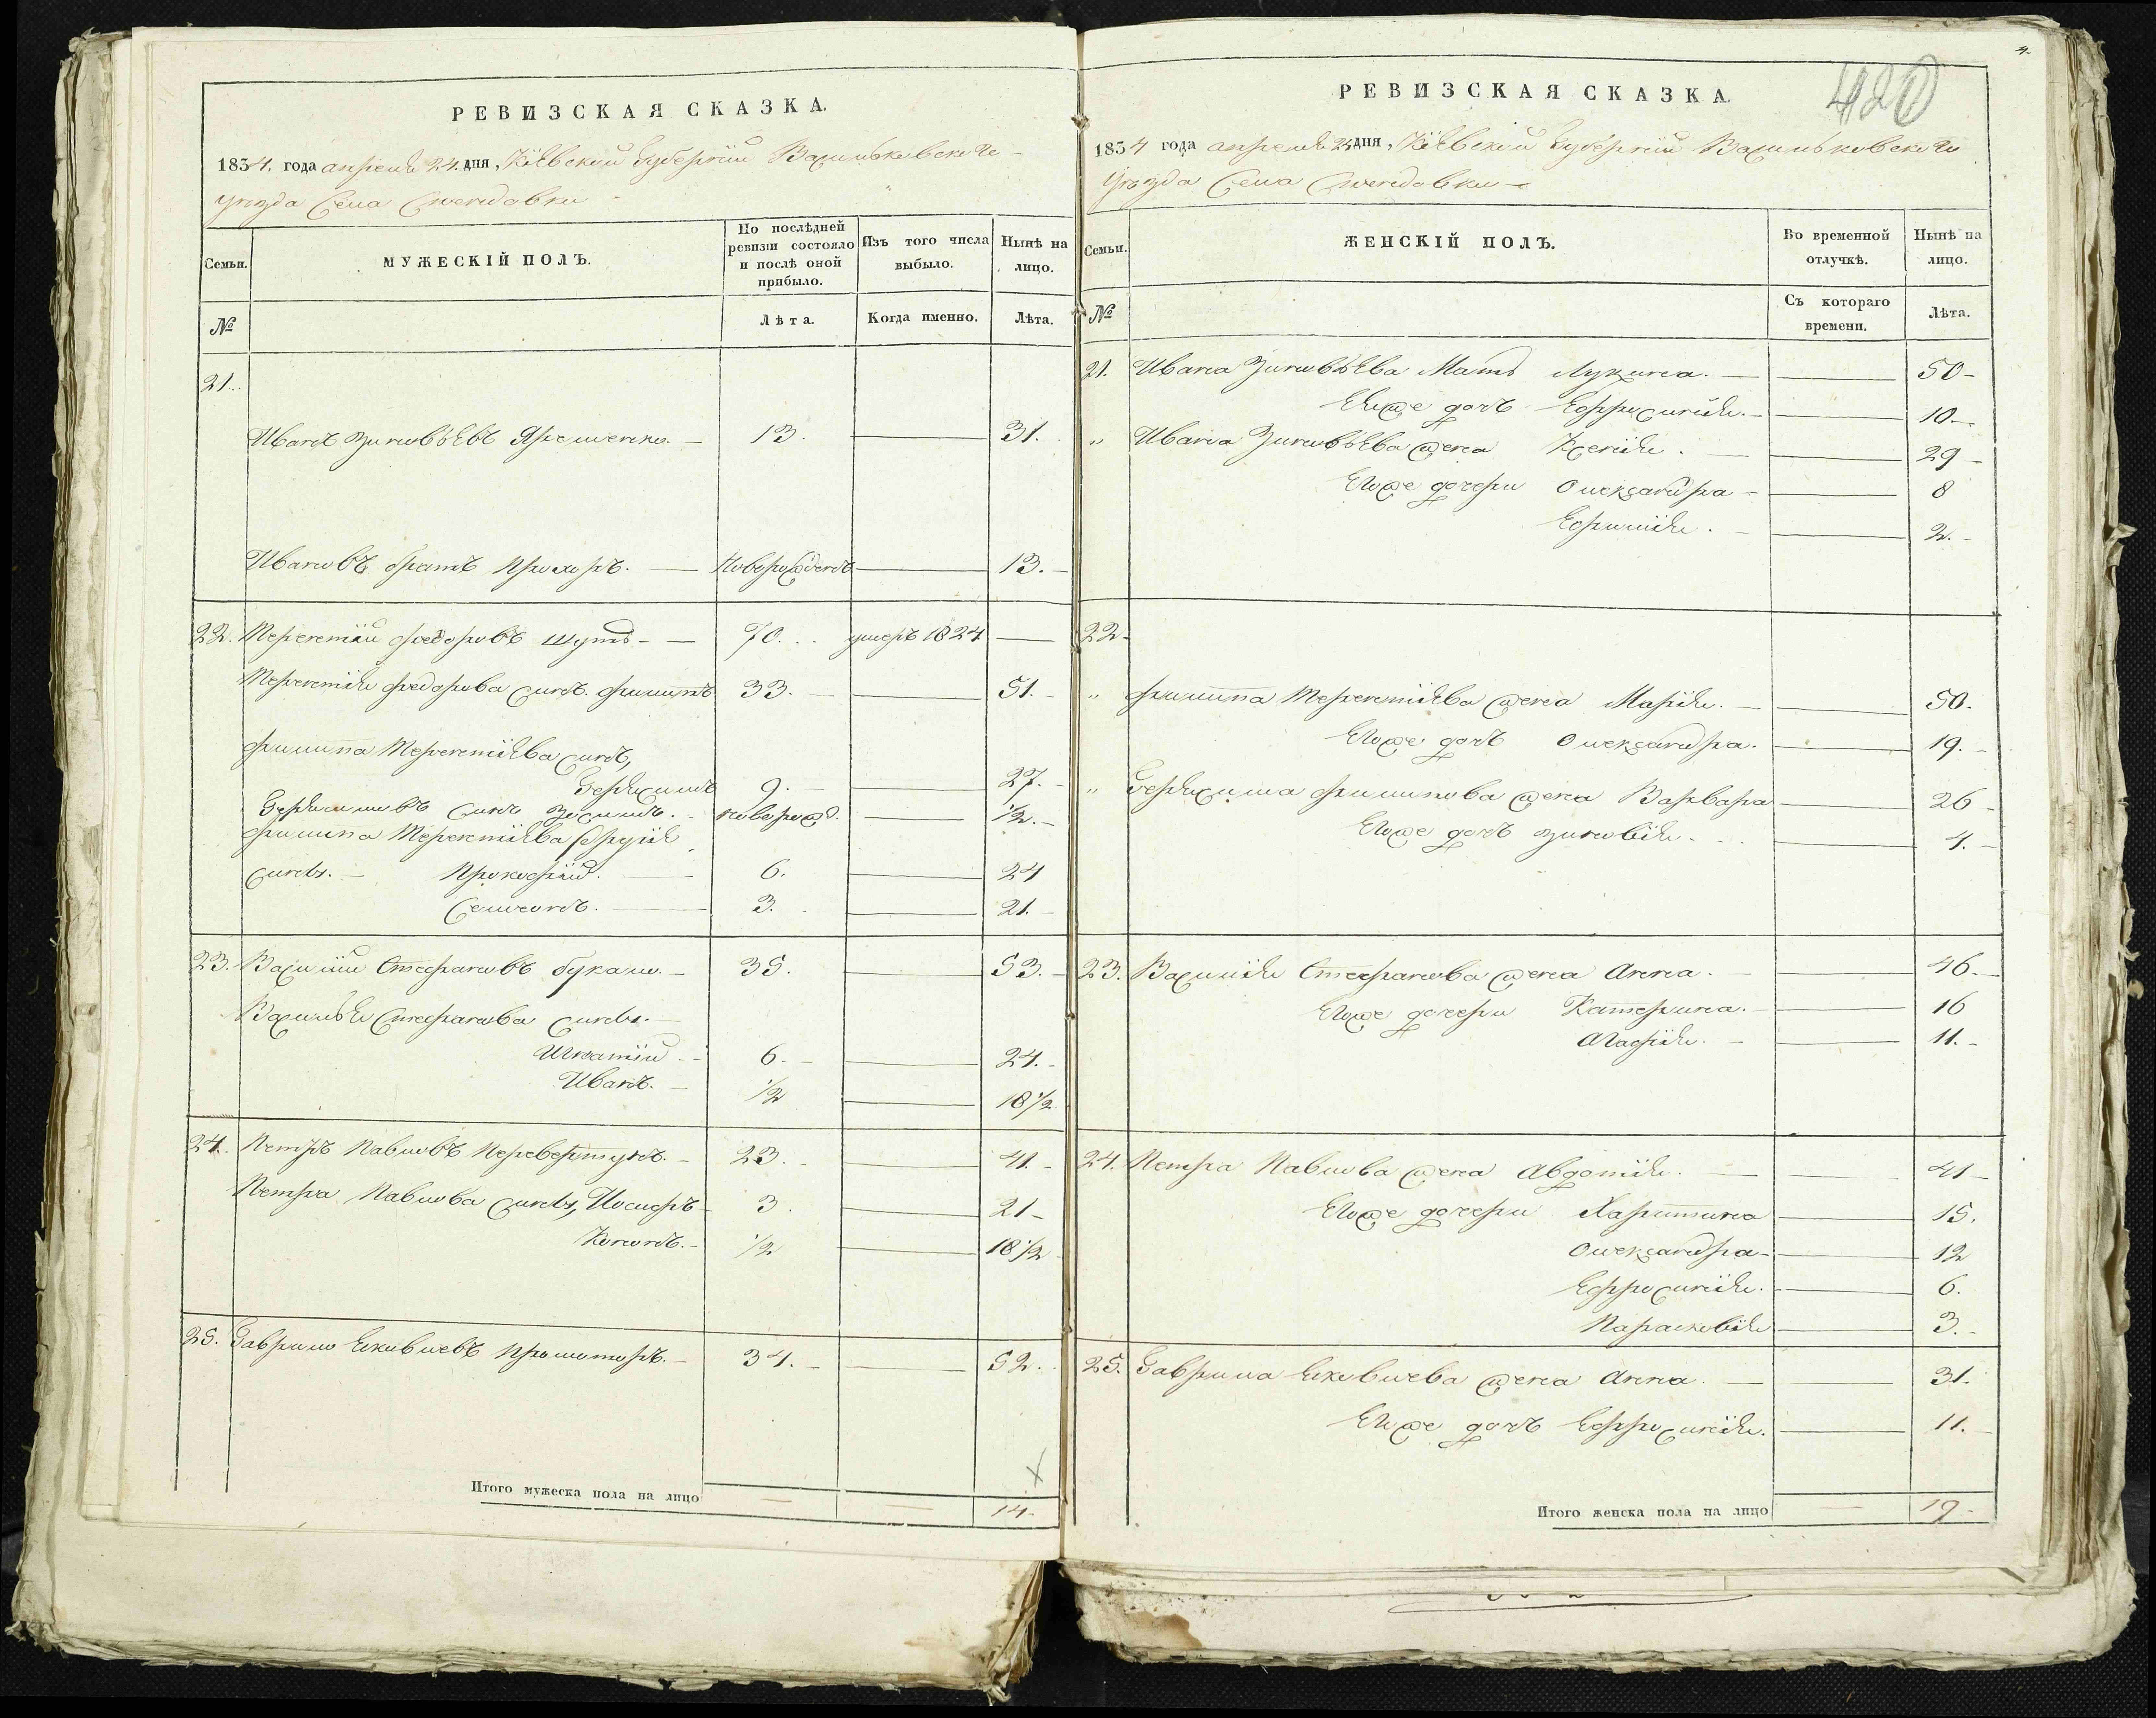 РЕВИЗСКАЯ СКАЗКА.
1834. года апреля 24. дня, Кіевской Губерніи Васильковскаго
уѣзда Села
Семьи.
МУЖЕСКІЙ ПОЛЪ.
По послѣдней ревизіи состояло и послѣ оной прибыло.
Изъ того числа выбыло.
Нынѣ на лицо.
№
Лѣта.
Когда именно.
Лѣта.
21.
Иванъ Зиновѣевъ Яременко. 13. 31.
Ивановъ братъ Прохоръ. Новорожденъ 13.
22. Терентій Федоровъ Шутъ 70. умеръ 1824
Терентія Федорова сынъ Филиппъ 33. 51.
Филиппа Терентіева сынъ,
Герасимъ 9. 27.
Герасимовъ сынъ Зосимъ. новорожд. 1/2.
Филиппа Терентіева другіе
сыны. Прокофій. 6. 24
Семионъ. 3. 21.
23. Василій Стефановъ Букало. 35. 53.
Василья Стефанова сыны.
Игнатій 6. 24.
Иванъ. 1/2 18 1/2
24. Петръ Павловъ Перевертунъ. 23. 41.
Петра Павлова сыны, Іосифъ 3. 21
Кононъ. 1/2 18 1/2
25. Гаврило Яковлевъ 34. 52.
Итого мужеска пола на лицо 14.
4.
420
РЕВИЗСКАЯ СКАЗКА.
1834 года апреля 24 дня, Кіевской Губерніи Васильковскаго
уѣзда Села
Семьи.
ЖЕНСКІЙ ПОЛЪ.
Во временной отлучкѣ.
Нынѣ на лицо.
№
Съ котораго времени.
Лѣта.
21. Ивана Зиновѣева Мать Лукина. 50
Еяже дочь Ефросинія. 10
" Ивана Зиновѣева жена Ксенія. 29
Егоже дочери Олександра 8
Ефимія. 2.
22
" Филиппа Терентіева жена Марія. 50.
Егоже дочь Олександра. 19.
" Герасима Филипова жена Варвара 26
Егоже дочь Зиновія. 4.
23. Василія Стефанова жена Анна. 46.
Егоже дочери Катерина. 16
Агафія. 11.
24. Петра Павлова жена Авдотія. 41
Егоже дочери Харитина 15.
Олександра 12
Ефросинія. 6.
Парасковія 3.
25. Гаврила Яковлева жена Анна. 31.
Егоже дочь Ефросинія. 11.
Итого женска пола на лицо 19